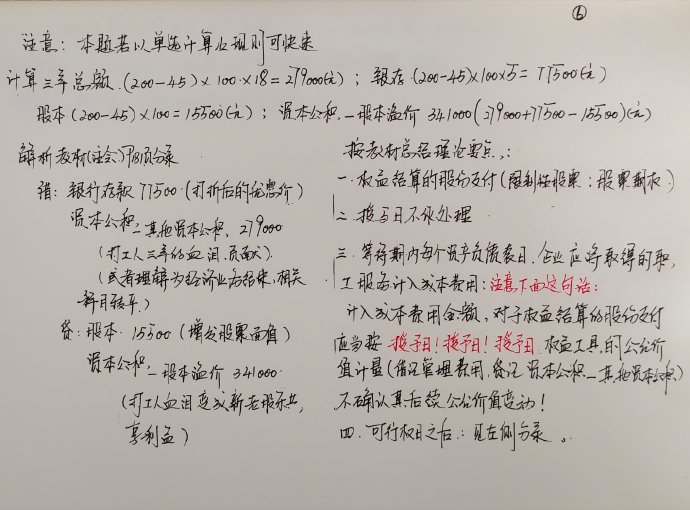 ⑥
注意：本题若以单选计算如规则可快速
计算三年总额.(200-45)×100×18=279000(元)；银存.(200-45)×100×5=77500(元)
股本(200-45)×100=15500(元)；资本公积.—股本溢价 341000(279000+77500-15500)(元)
解析教材(注会)P181页分录
借：银行存款 77500(打折后的优惠价)
资本公积
—其他资本公积. 279000
(打工人三年的血泪.贡献)
(或者理解为经济业务结束,相关
科目转平.)
贷：股本. 15500(增发股票面值)
资本公积
—股本溢价 341000.
(打工人血泪变成新老股东共.
享利益)
按教材总结理论要点.：
一.权益结算的股份支付(限制性股票；股票期权)
二.授予日不做处理
三.等待期内每个资产负债表日.企业应将取得的职.
工服务计入成本费用；注意下面这句话：
计入成本费用金额.对于权益结算的股份支付
应当按 授予日！授予日！授予日.权益工具的公允价
值计量(借记管理费用.贷记 资本公积—其他资本公积)
不确认其后续公允价值变动！
四.可行权日之后.：见左侧分录.。